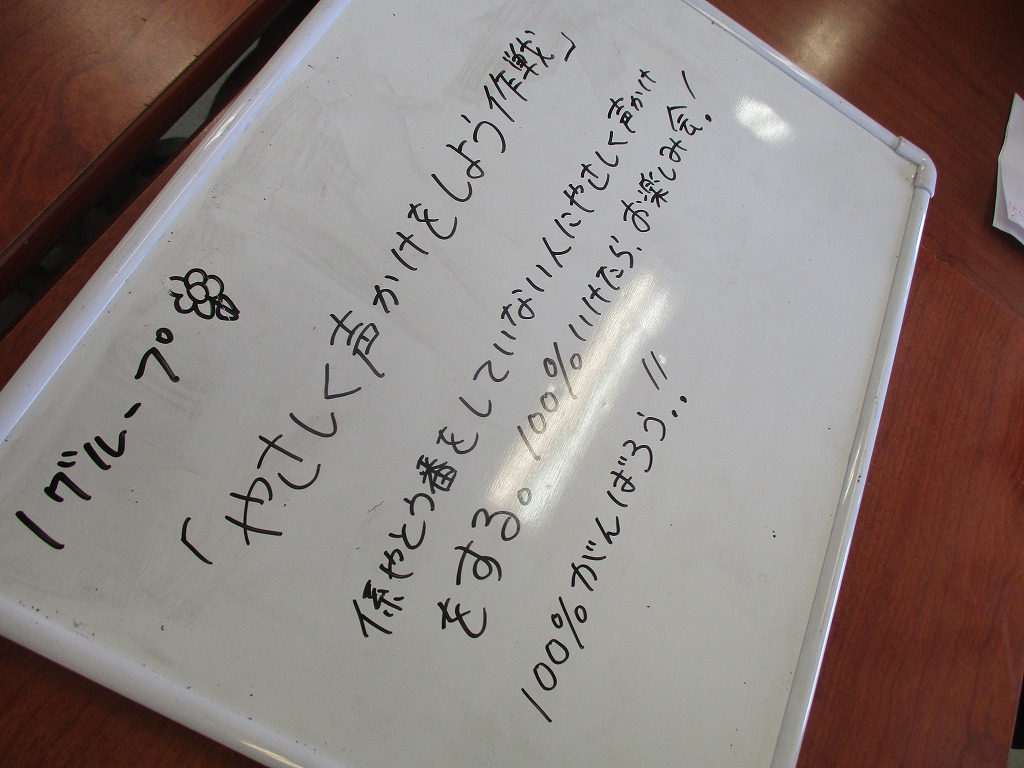 1グループ
「やさしく声かけをしよう作戦」
係やとう番をしていない人にやさしく声かけ
をする。100%いけたら、お楽しみ会!
100%がんばろう!!